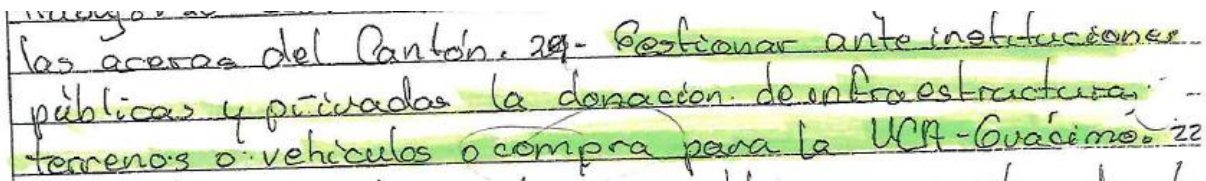 las aceras del Cantón. 29- Gestionar ante instituciones
públicas y privadas la donación de infraestructura,
terrenos o vehículos o compra para la UCA-Guácimo. 22